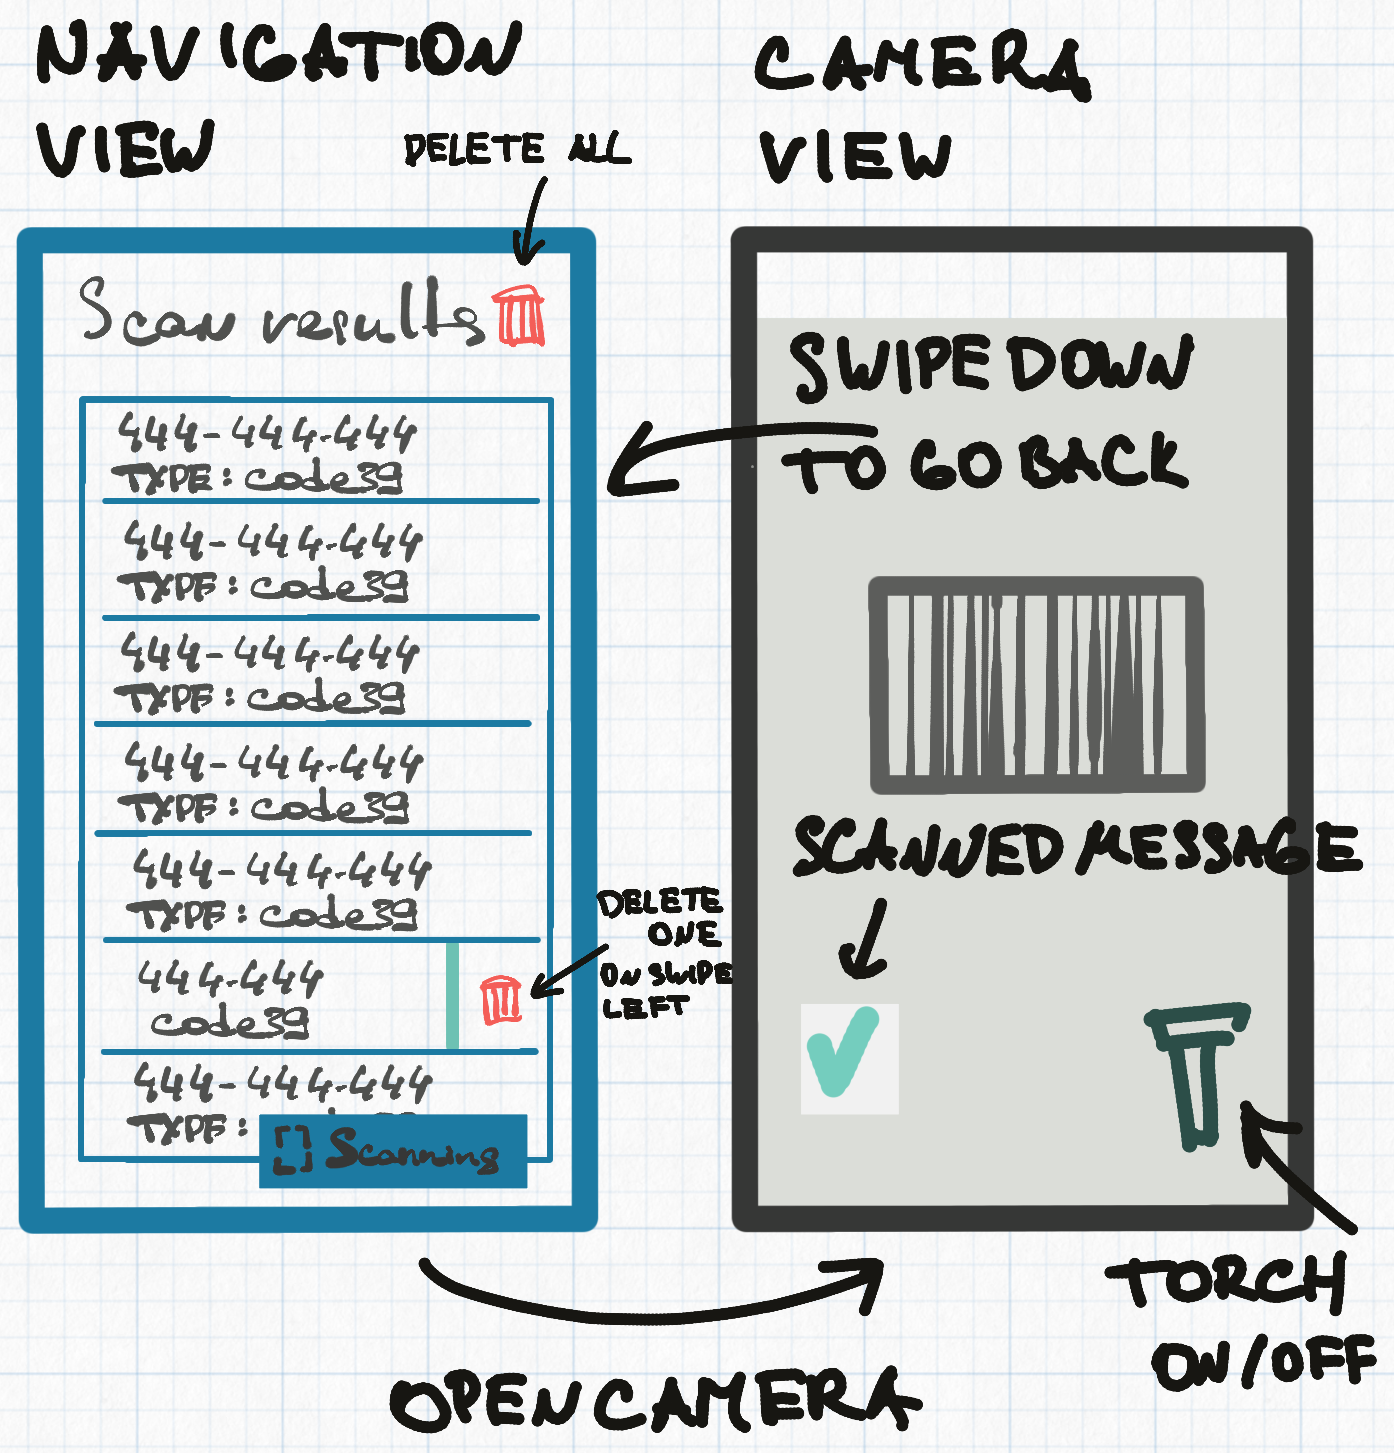 NAVIGATION
VIEW
DELETE ALL
Scan results
444-444-444
TYPE: code39
444-444-444
TYPE: code39
444-444-444
TYPE: code39
444-444-444
TYPE: code39
444-444-444
TYPE: code39
444-444
code39
DELETE
ONE
ON SWIPE
LEFT
444-444-444
TYPE:
Scanning
CAMERA
VIEW
SWIPE DOWN
TO GO BACK
SCANNED MESSAGE
TORCH
ON/OFF
OPEN CAMERA